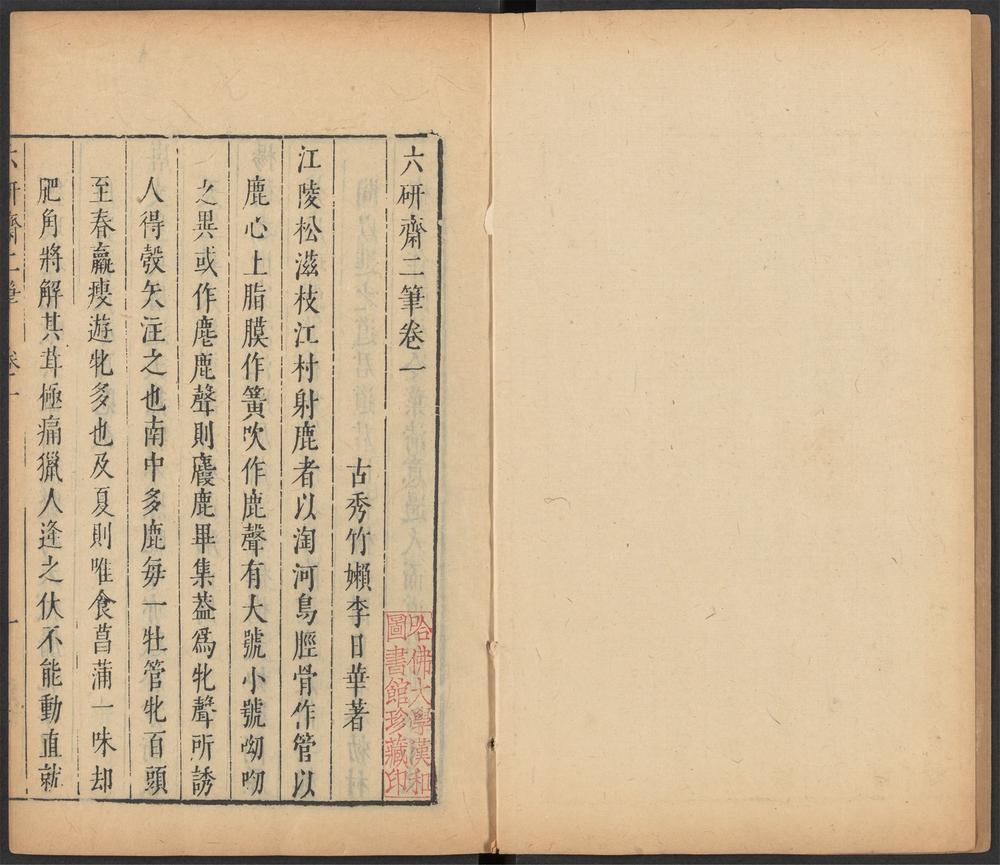 六研齋二筆卷一
古秀竹嬾李日華著
江陵松滋枝江村射鹿者以淘河鳥脛骨作管以
鹿心上脂膜作簧吹作鹿聲有大號小號呦呦
之異或作麀鹿聲則麌鹿畢集葢爲牝聲所誘
人得彀矢注之也南中多鹿每一牡管牝百頭
至春羸瘦遊牝多也及夏則唯食菖蒲一味却
肥角將解其茸極痛獵人逢之伏不能動直就
六研齋二筆 卷一 一
哈佛大學漢和
圖書館珍藏印